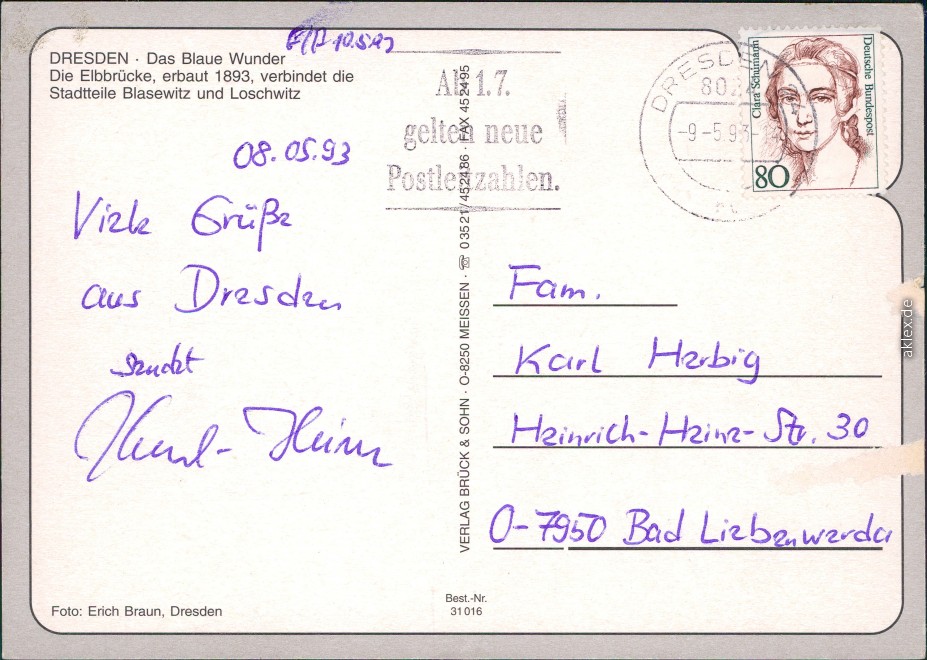 DRESDEN · Das Blaue Wunder
Die Elbbrücke, erbaut 1893, verbindet die
Stadtteile Blasewitz und Loschwitz
10.5.93
08.05.93
Viele Grüße
aus Dresden
sendet
Heinz
Foto: Erich Braun, Dresden
Ab 1.7.
gelten neue
Postleitzahlen.
VERLAG BRÜCK & SOHN · O-8250 MEISSEN · ☏ 03521/452486 · FAX 452495
Best.-Nr.
31016
DRESDEN
-9-5.93-14
Clara Schumann
Deutsche Bundespost
80
Fam.
Karl Herbig
Heinrich-Heine-Str. 30
O-7950 Bad Liebenwerda
aklex.de